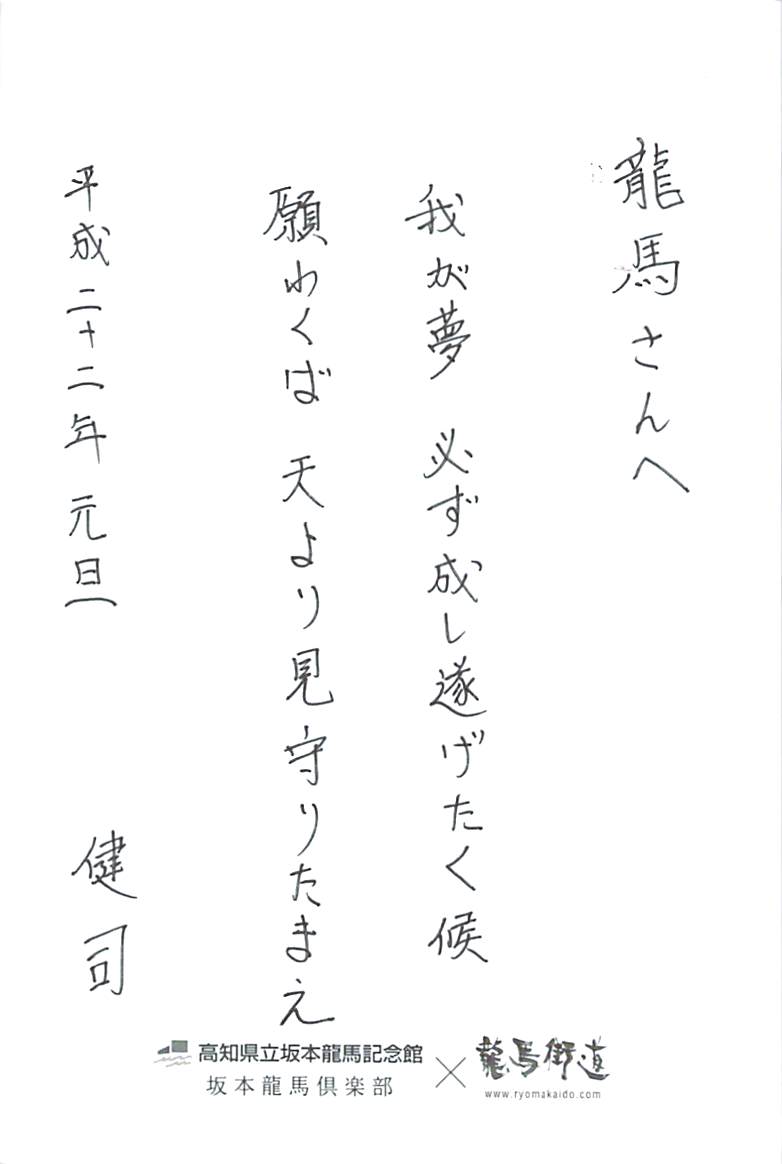 龍馬さんへ
我が夢 必ず成し遂げたく候
願わくば 天より見守りたまえ
平成二十二年 元旦
健司
高知県立坂本龍馬記念館
坂本龍馬倶楽部
×
龍馬街道
www.ryomakaido.com